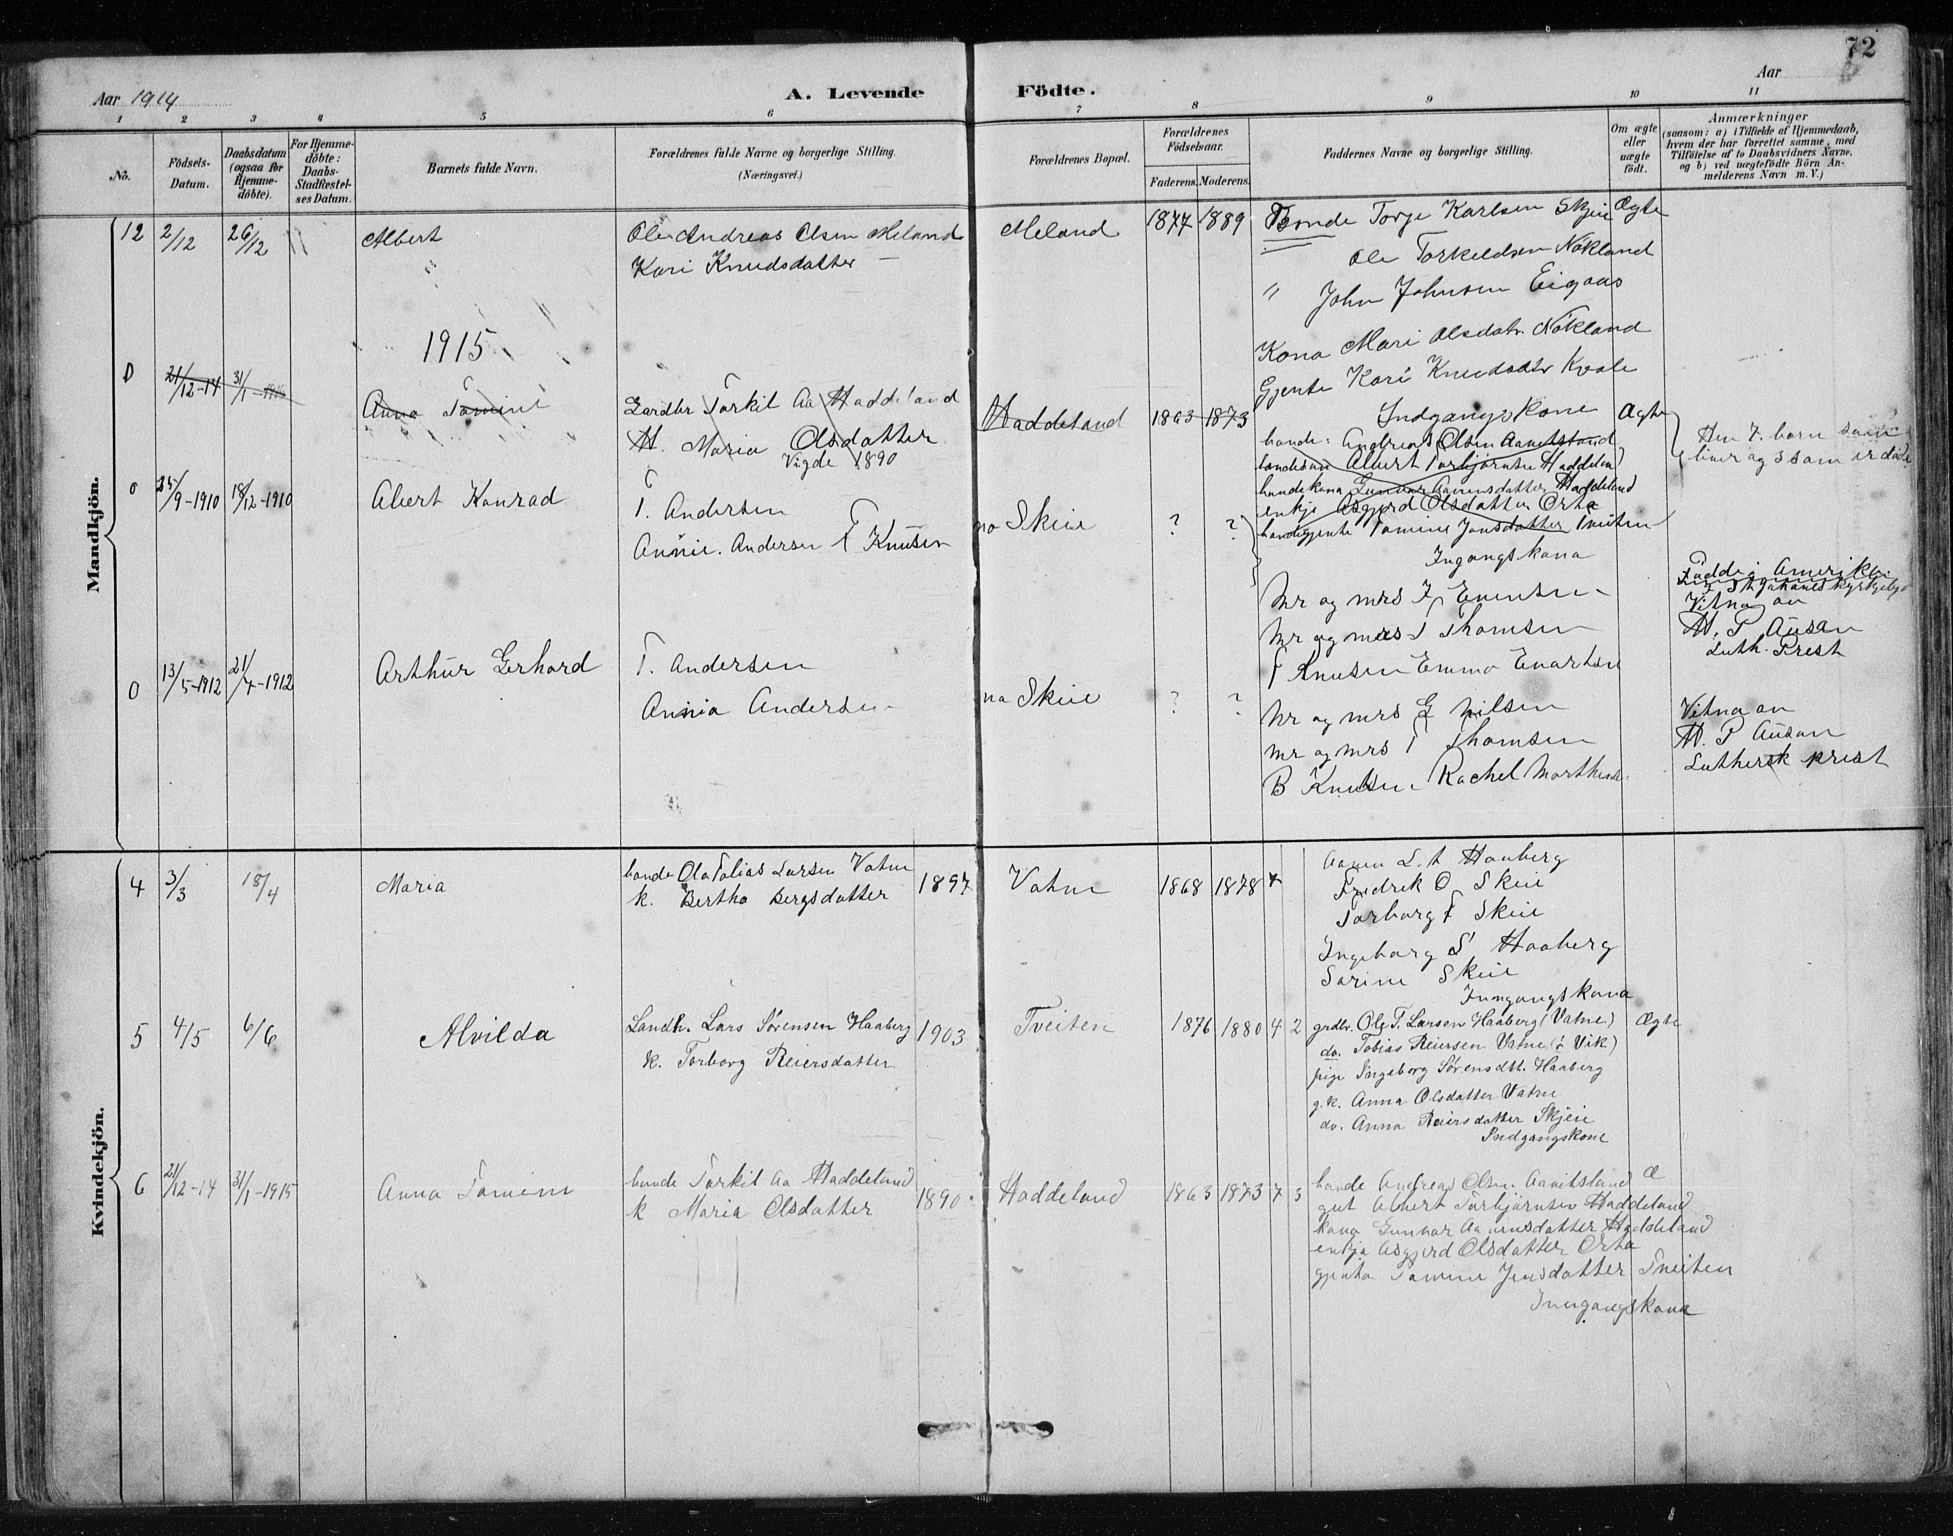 72
Aar 1914
A. Levende
Födte.
Aar
1 2 3 4 5 6 7 8 9 10 11
No.
Födsels-Datum.
Daabsdatum (ogsaa for Hjemme-döbte).
For Hjemme-döbte: Daabs-Stadfæstel-ses Datum.
Barnets fulde Navn.
Forældrenes fulde Navne og borgerlige Stilling.
(Næringsvei.)
Forældrenes Bopæl.
Forældrenes Födselsaar.
Faderens. Moderens.
Faddernes Navne og borgerlige Stilling.
Om ægte eller uægte födt.
Anmærkninger
(saasom: a) i Tilfælde af Hjemmedaab,
hvem der har forrettet samme, med
Tilföielse af to Daabsvidners Navne.
og b) ved uægtefödte Börn An-
melderens Navn m. V.)
Mandkjön.
12 2/12 26/12 " Albert
Ole Andreas Olsen Meland
Kari Knudsdatter —
Meland 1877 1889
Bonde Torje Karlsen Skjeie Ægte
Ole Torkeldsen Nökland
" John Johnsen Eigaas
Kona Mari Olsdatr. Nökland
Gjente Kari Knudsdtr Kvale
Indgangskone
1915
0 21/12-14 31/1-1915 Anna Tomine
Gardbr Torkil Aa Haddeland
H. Maria Olsdatter
Vigde 1890
Haddeland 1863 1873 Ægte
bonde: Andreas Olsen Aavitsland
Albert Torbjørnsen Haddeland
bondekona Gunvor Aanensdatter Haddeland
enkje Asgjerd Olsdatter Orta
bondegjente Tomine Jonsdatter Tveiten
Ingangskona
7. born som
liver og 3 som er döde
0 25/9-1910 18/12-1910 Albert Konrad
T. Andersen
Annie. Andersen f Knusen
no Skeie ? ?
Mr og mrs F Evensen
Mr og mrs T Thomsen
T Knusen Emma Evartsen
Födde i Amerika
Vitna av
H. P. Ausan
Luth. Prest
0 13/5-1912 21/7-1912 Arthur Gerhard
T. Andersen
Annia Andersen
na Skeie ? ?
Mr og mrs G Nilsen
mr og mrs T Thomsen
B Knutsen. Rachel
Vitna av
H. P Ausan
Luthersk prest
Kvindekjön.
4 3/3 18/4 Maria
bonde Ola Tobias Larsen Vatne
k. Bertha Bergsdatter 1897
Vatne 1868 1878 7
Aanen L. Haaberg
Fredrik O Skeie
Torborg F Skeie
Ingeborg S Haaberg
Sarine Skeie
Inngangskona
5 4/5 6/6 Alvilda
Landh. Lars Sørensen Haaberg 1903
k. Torborg Reiersdatter
Tveiten 1876 1880 4 2
grdbr. Ole T. Larsen Haaberg (Vatne) Ægte
do. Tobias Reiersen Vatne (i Vik)
pige Ingeborg Sørensdtt. Haaberg
g.k. Anna Olsdatter Vatne
do. Anna Reiersdatter Skjeie
Indgangskone
6 21/12-14 31/1-1915 Anna Tomine
bonde Torkil Aa Haddeland
k Maria Olsdatter 1890
Haddeland 1863 1873 7 3
bonde Andreas Olsen Aavitsland Æ
gut Albert Torbjørnsen Haddeland
kona Gunvor Aanensdatter Haddeland
enkja Asgjerd Olsdatter Orta
gjenta Tomine Jonsdatter Tveiten
Inngangskona